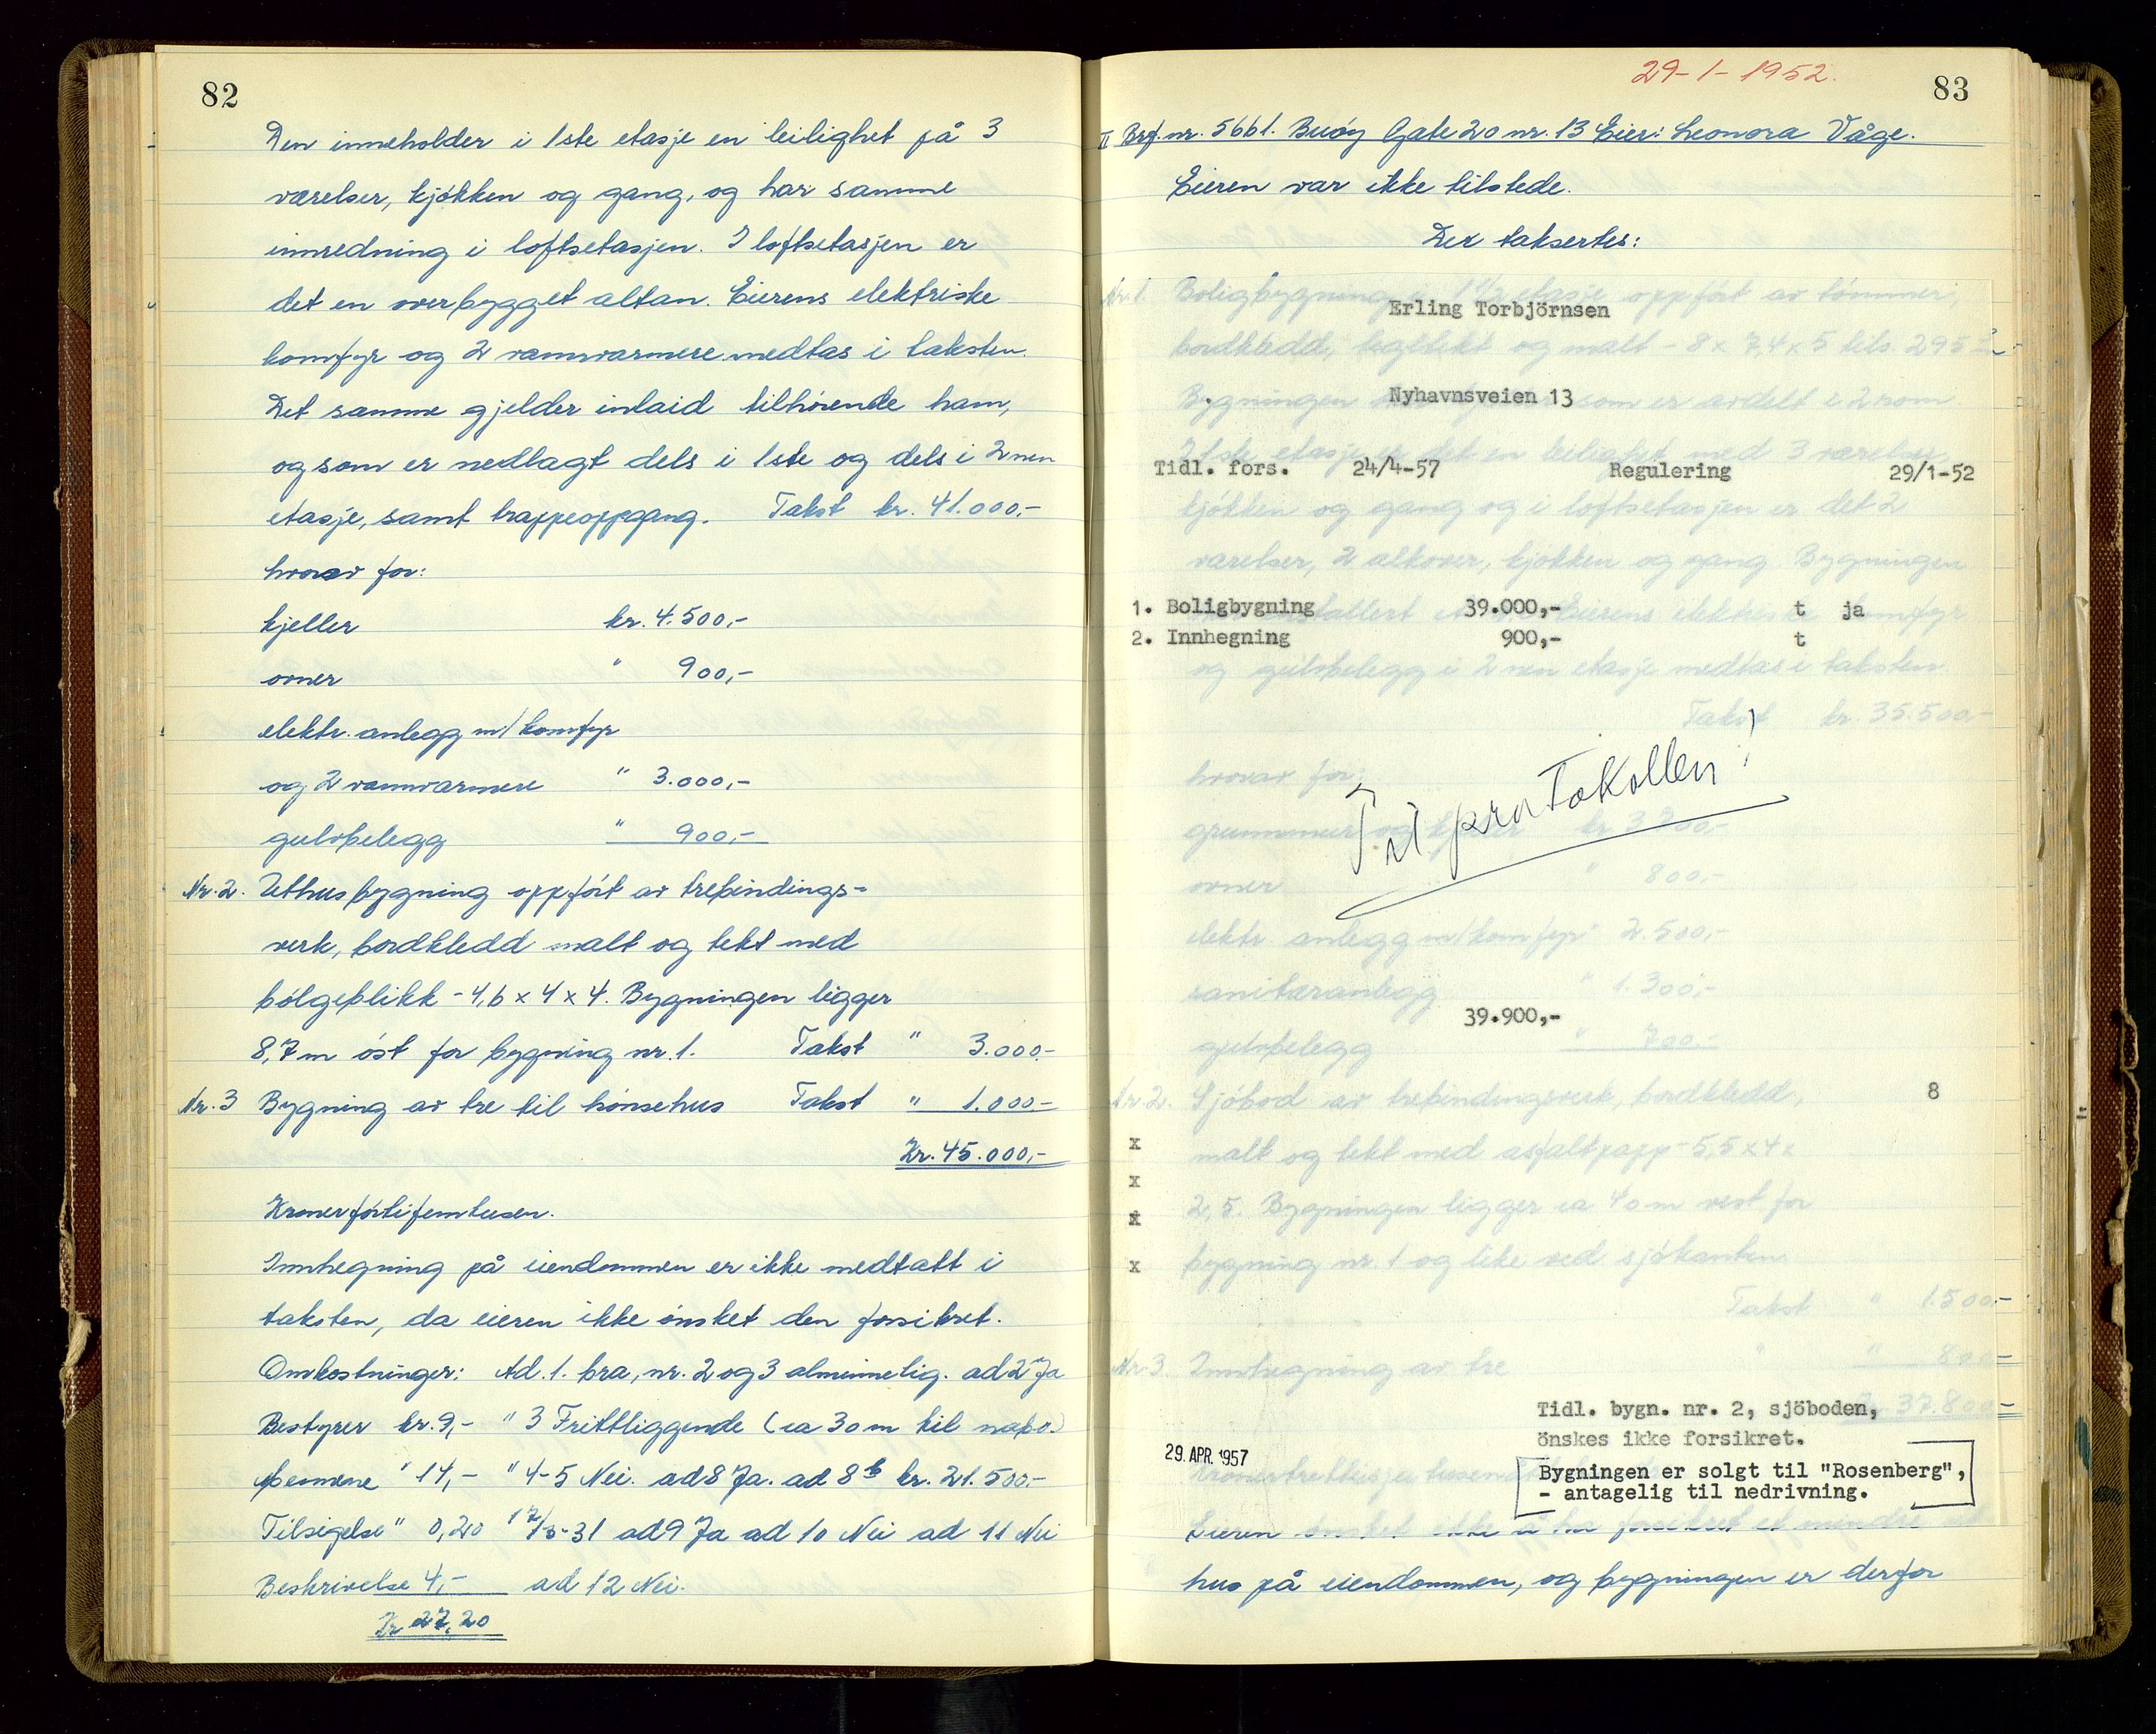 82
Den inneholder i 1ste etasje en leilighet på 3
værelser, kjøkken og gang, og har samme
innredning i loftsetasjen. I loftsetasjen er
det en overbygget altan. Eierens elektriske
komfyr og 2 vannvarmere medtas i taksten.
Det samme gjelder inlaid tilhørende ham,
og som er nedlagt dels i 1ste og dels i 2nen
etasje, samt trappeoppgang. Takst kr. 41.000,-
hvorav for:
kjeller kr. 4.500,-
ovner " 900,-
elektr. anlegg m/komfyr
og 2 vannvarmere " 3.000,-
gulvbelegg " 900,-
Nr. 2. Uthusbygning oppført av trebindings-
verk, bordkledd malt og tekt med
bølgeblikk - 4,6 x 4 x 4. Bygningen ligger
8,7 m øst for bygning nr. 1. Takst " 3.000,-
Nr. 3 Bygning av tre til hønsehus Takst " 1.000-
Kr. 45.000,-
Kronerførtifemtusen.
Innhegning på eiendommen er ikke medtatt i
taksten, da eieren ikke ønsket den forsikret.
Omkostninger: Ad. 1. bra, nr. 2 og 3 alminnelig. ad 2 Ja
Bestyrer kr. 9,- " 3 Frittliggende (ca 30 m til nabo.)
Mennene " 14,- " 4-5 Nei. ad 8 Ja. ad 8b kr. 21.500.-
Tilsigelse " 0,20 17/3-31 ad 9 Ja ad 10 Nei ad 11 Nei
Beskrivelse 4,- ad 12 Nei.
Kr 27,20
29-1-1952.
83
II Brf.nr. 5661. Buøy Gate 20 nr. 13 Eier: Leonora Våge.
Eieren var ikke tilstede.
Det taksertes:
Nr. 1. Boligbygning i 1 1/2 etasje oppført av tømmer
Erling Torbjörnsen
bordkledd, tegltekt og malt - 8 x 7,4 x 5 tils. 295
Bygningen som er avdelt i 2 rom
Nyhavnsveien 13
I 1ste etasje er det en leilighet med 3 værelser,
Tidl. fors. 24/4-57 Regulering 29/1-52
kjøkken og gang og i loftsetasjen er det 2
værelser, 2 alkover, kjøkken og gang. Bygningen
Eierens elektriske komfyr
1. Boligbygning 39.000,- t ja
2. Innhegning 900,- t
og gulvbelegg i 2nen etasje medtas i taksten.
Takst kr. 35.500,-
hvorav for:
Til protokollen!
grunnmur og kjeller kr 3.200,-
ovner " 800,-
elektr. anlegg m/komfyr " 2.500,-
sanitæranlegg " 1.300,-
39.900,-
gulvbelegg " 700,-
Nr. 2. Sjøbod av trebindingsverk, bordkledd,
8
x malt og tekt med asfaltpapp - 5,5 x 4 x
x
x 2,5. Bygningen ligger ca 40 m vest for
x bygning nr. 1 og like ved sjøkanten.
Takst " 1.500,-
Nr. 3. Innhegning av tre " " 800-
37.800
Tidl. bygn. nr. 2, sjöboden,
önskes ikke forsikret.
29. APR. 1957
Bygningen er solgt til "Rosenberg",
- antagelig til nedrivning.
Eieren ønsket ikke å ha forsikret et mindre
hus på eiendommen, og bygningen er derfor